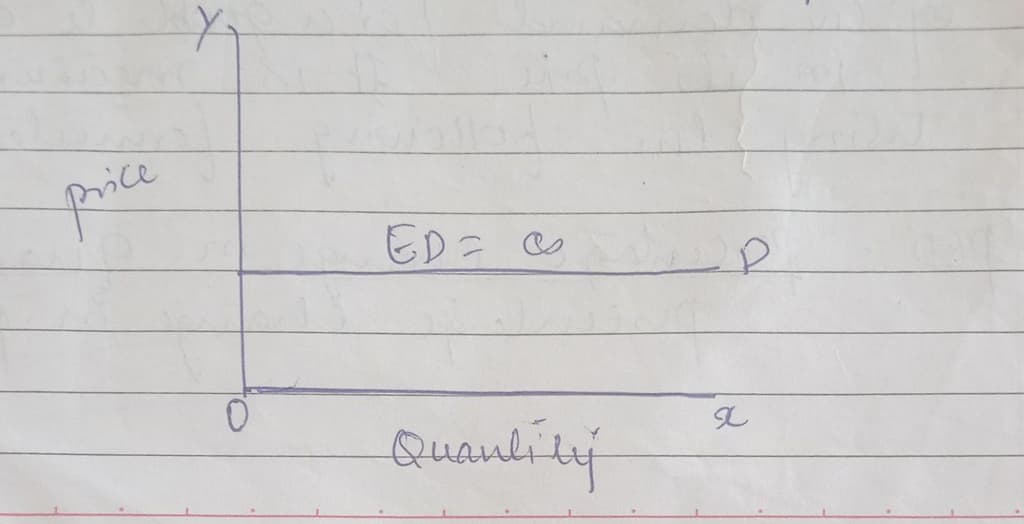 Y
price
ED = ∞
D
O
x
Quantity